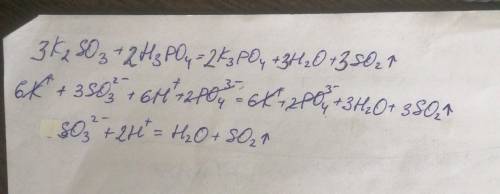 3K₂SO₃ + 2H₃PO₄ = 2K₃PO₄ + 3H₂O + 3SO₂↑
6K⁺ + 3SO₃²⁻ + 6H⁺ + 2PO₄³⁻ = 6K⁺ + 2PO₄³⁻ + 3H₂O + 3SO₂↑
SO₃²⁻ + 2H⁺ = H₂O + SO₂↑